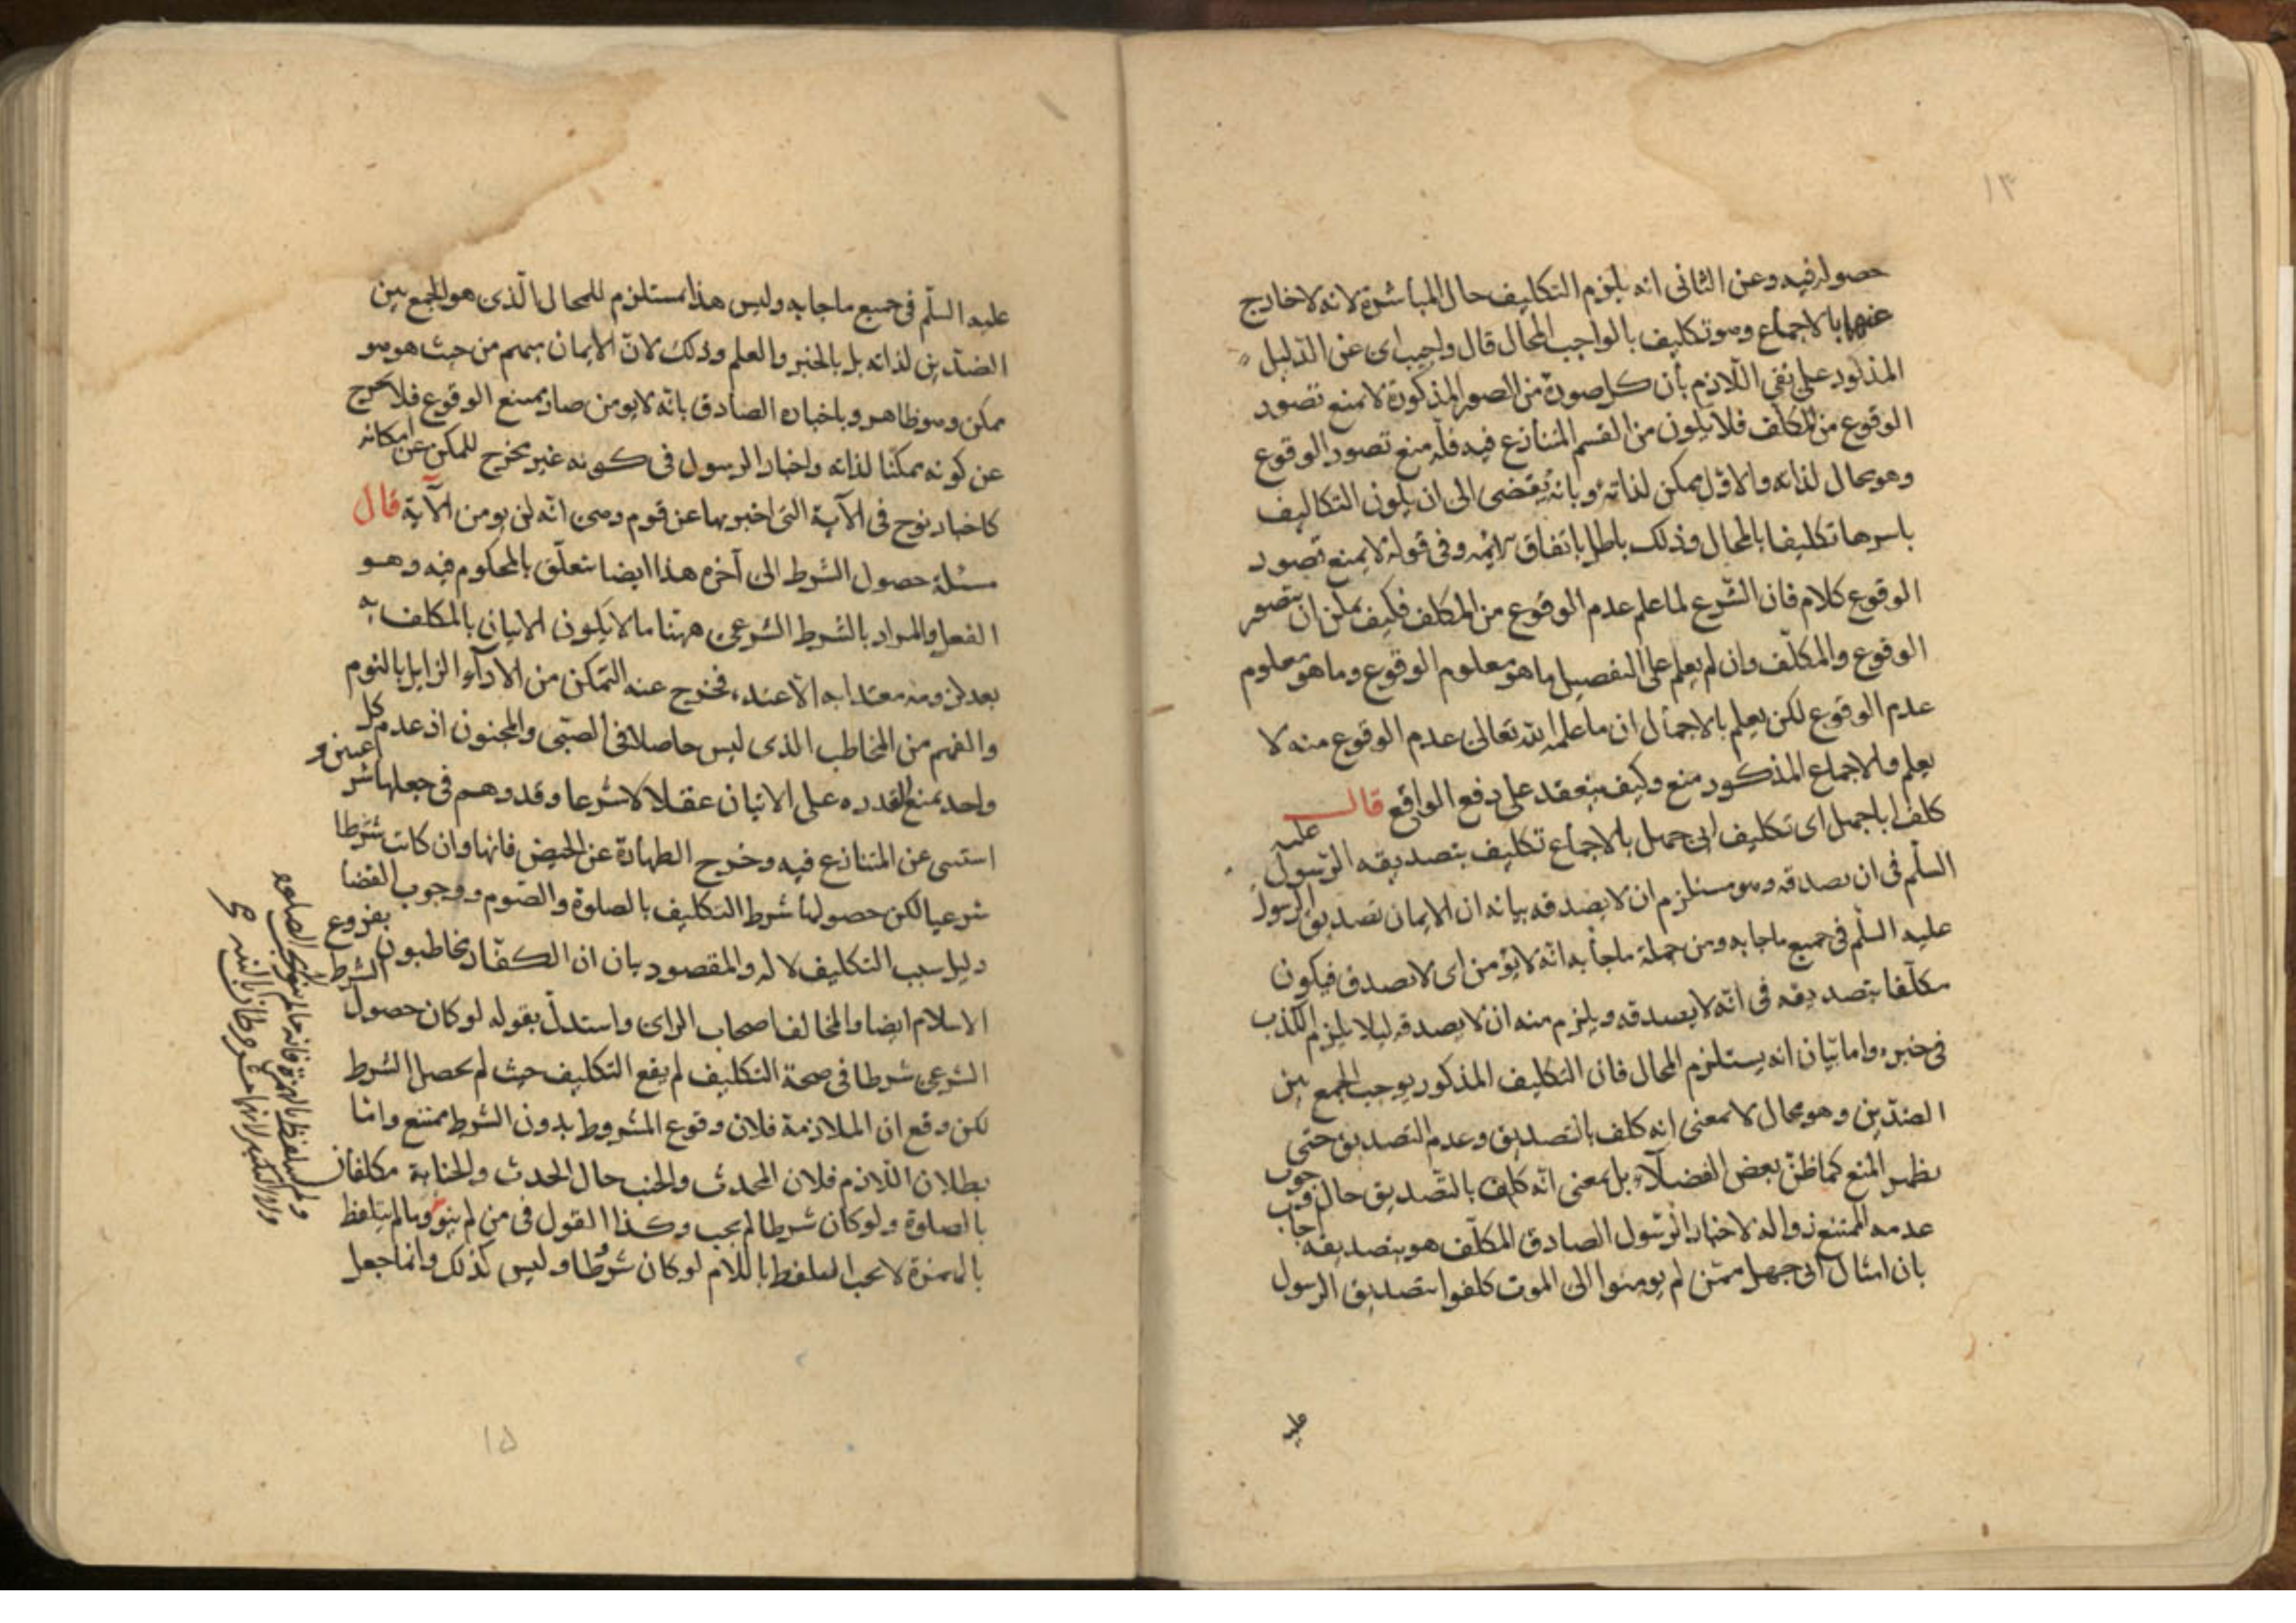 ١٣
حصوله فيه وعن الثانى انه يلزم التكليف حال المباشرة لانه لا خارج
عنهما بالاجماع وهو تكليف بالواجب المحال قال واجيب اى عن الدليل
المذكور على نفى اللازم بأن كل صورة من الصور المذكورة لا يمنع تصور
الوقوع من المكلف فلا يكون من القسم المتنازع فيه فانه منع تصور الوقوع
وهو محال لذاته والاول ممكن لذاته وبانه يقتضى الى ان يكون التكاليف
باسرها تكليفا بالمحال وذلك باطل باتفاق وفى قوله لا يمنع تصور
الوقوع كلام فان الشرع لما علم عدم الوقوع من المكلف فكيف يمكن ان يتصور
الوقوع والمكلف وان لم يعلم على التفصيل ما هو معلوم الوقوع وما هو معلوم
عدم الوقوع لكن يعلم بالاجمال ان ما علم الله تعالى عدم الوقوع منه لا
يعلم والاجماع المذكور منع وكيف ينعقد على دفع الواقع قال
كلف ابا جهل اى تكليف ابى جهل بالاجماع تكليف بتصديقه الرسول عليه
السلم فى ان لا يصدقه وهو مستلزم ان لا يصدقه بيانه ان الايمان تصديق الرسول
عليه السلم فى جميع ما جا به ومن جملة ما جا به انه لا يؤمن اى لا يصدق فيكون
مكلفا بتصديقه فى انه لا يصدقه ويلزم منه ان لا يصدقه ليلا يلزم الكذب
فى خبره واما بيان انه يستلزم المحال فان التكليف المذكور يوجب الجمع بين
الضدين وهو محال لا بمعنى انه كلف بالتصديق وعدم التصديق حتى
يظهر المنع كما ظن بعض الفضلاء بل بمعنى انه كلف بالتصديق حال وجوب
عدمه الممتنع زواله لاخبار الرسول الصادق المكلف هو بتصديقه اجاب
بان امثال ابى جهل ممن لم يومنوا الى الموت كلفوا بتصديق الرسول
عليه
عليه السلم فى جميع ما جا به وليس هذا مستلزم للمحال الذى هو الجمع بين
الضدين لذاته بل بالخبر والعلم وذلك لان الايمان منهم من حيث هو هو
ممكن وهو ظاهر وباخباره الصادق بانه لا يومن صار ممتنع الوقوع فلا يخرج
عن كونه ممكنا لذاته واخبار الرسول فى كونه غير مخرج للممكن عن امكانه
كاخبار نوح فى الآية التى اخبر بها عن قوم وهى انه لن يومن الآية قال
مسئلة حصول الشرط الى آخره هذا ايضا يتعلق بالمحكوم فيه وهو
الفعل والمراد بالشرط الشرعى ههنا ما لا يكون الاتيان بالمكلف به
بعد لزومه معتدا به الا عنده فخرج عنه التمكن من الاداء الزايل بالنوم
والفهم من المخاطب الذى ليس حاصلا فى الصبى والمجنون اذ عدم كل
واحد يمنع القدره على الاتيان عقلا لا شرعا وقد وهم فى جعلها شر
عيين و
استسى عن المتنازع فيه وخرج الطهارة عن الحيض فانها وان كانت شرطا
شرعيا لكن حصولها شرط التكليف بالصلوة والصوم ووجوب القضا
دليل سبب التكليف لا له والمقصود بيان ان الكفار مخاطبون بفروع
الاسلام ايضا والمخالف اصحاب الراى واستدل بقوله لو كان حصول الشرط
الشرعى شرطا فى صحة التكليف لم يقع التكليف حيث لم يحصل الشرط
لكن وقع ان الملازمة فلان وقوع المشروط بدون الشرط ممتنع واما
بطلان اللازم فلان المحدث والجنب حال الحدث والجنابة مكلفان
بالصلوة ولو كان شرطا لم يجب وكذا القول فى من لم ينو وما لم يتلفظ
بالهمزة لا يجب التلفظ باللام لو كان شرطا وليس كذلك وانما جعل
١٥